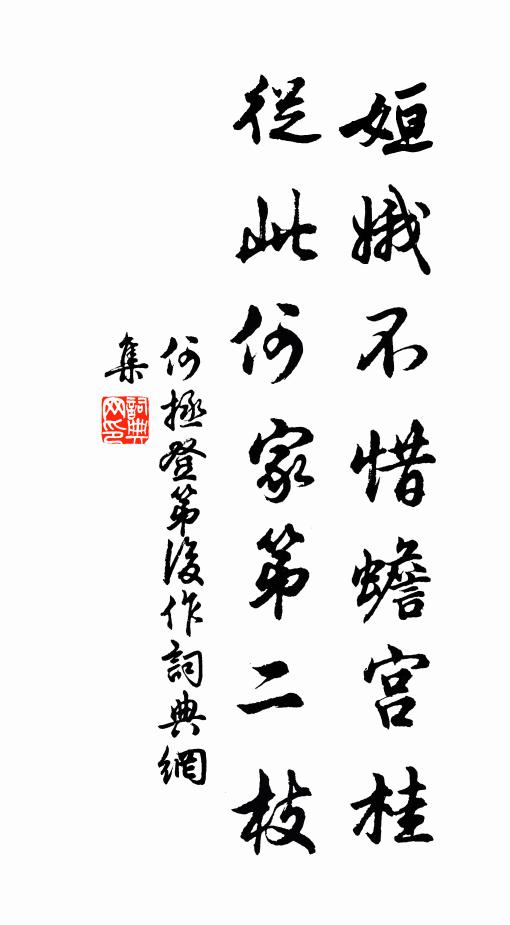 姮娥不惜蟾宫桂
從此何家第二枝
何拯登第後作詞典網
集
詞典
网印